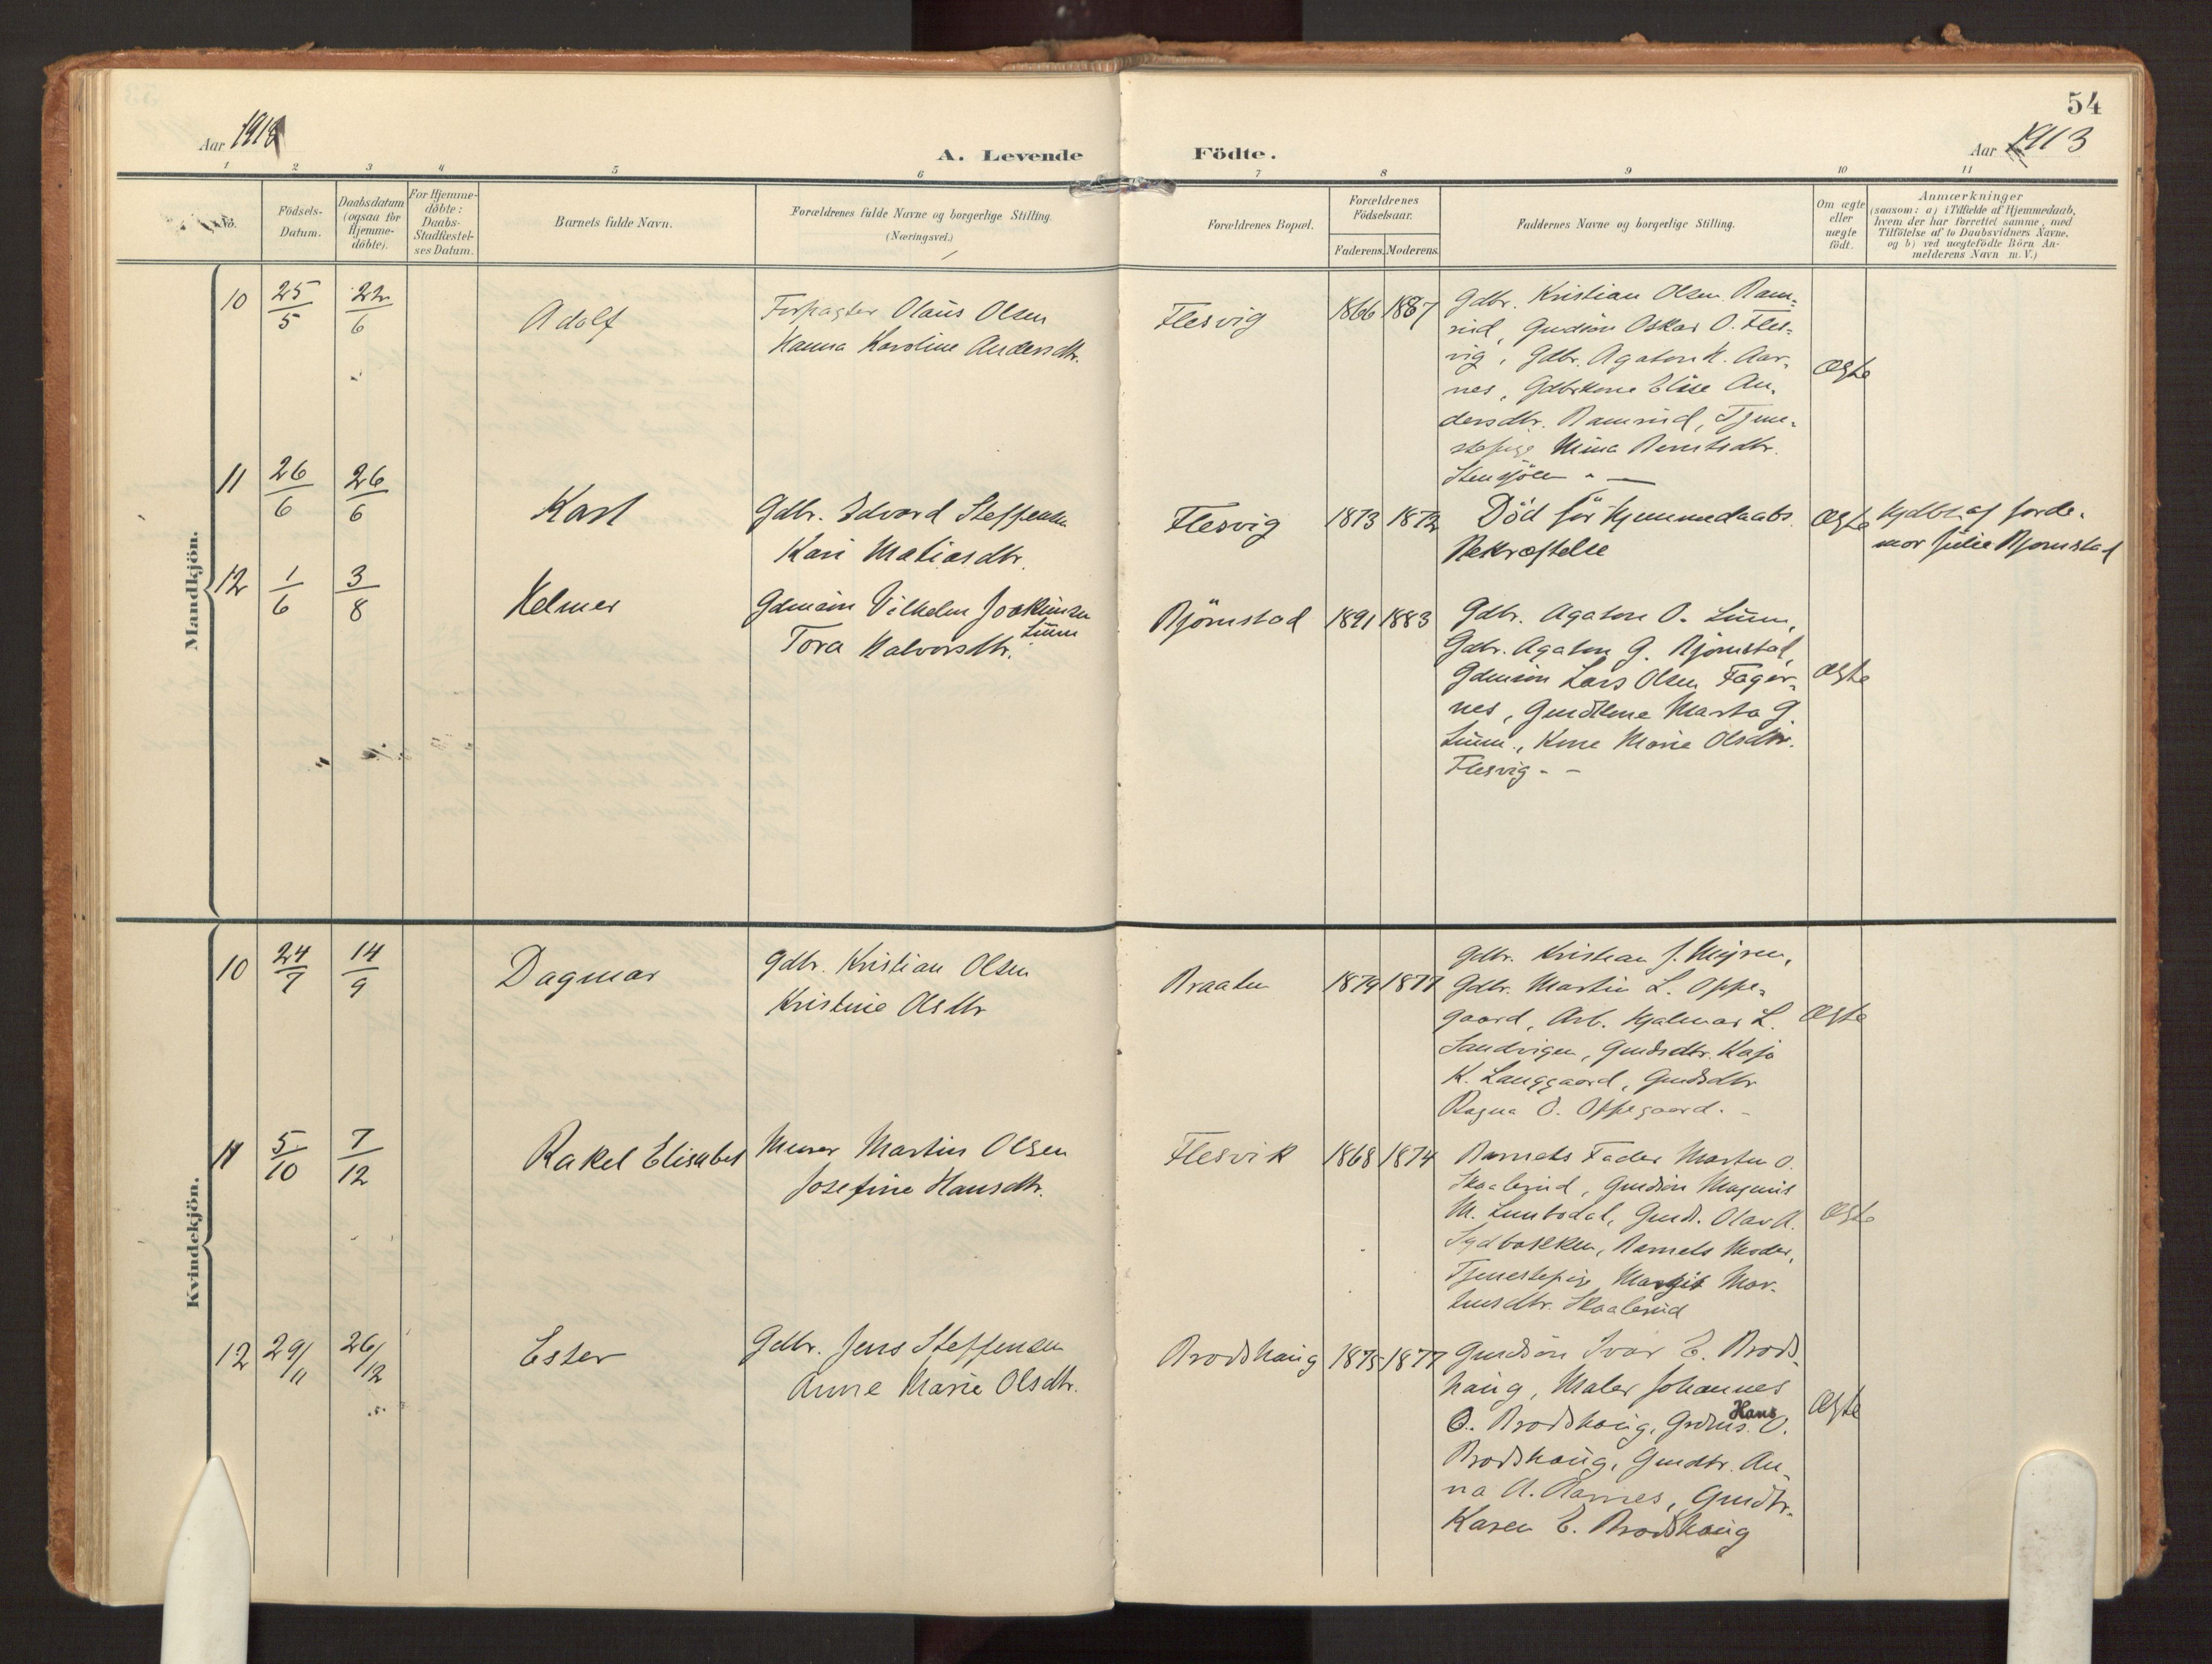 54
Aar 1913
A. Levende Födte.
Aar 1913
1 2 3 4 5 6 7 8 9 10 11
No.
Födsels-Datum.
Daabsdatum (ogsaa for Hjemmedöbte).
For Hjemmedöbte: Daabs-Stadfæstelses Datum.
Barnets fulde Navn.
Forældrenes fulde Navne og borgerlige Stilling.
(Næringsvei.)
Forældrenes Bopæl.
Forældrenes Födselsaar.
Faderens. Moderens.
Faddernes Navne og borgerlige Stilling.
Om ægte eller uægte födt.
Anmærkninger
(saasom: a) i Tilfælde af Hjemmedaab,
hvem der har forrettet samme, med
Tilföielse af to Daabsvidners Navne,
og b) ved uægtefödte Börn Anmelderens Navn m. V.)
Mandkjön.
10 25/5 22/6 Adolf
Forpagter Olaus Olsen
Hanna Karoline Andersdtr.
Flesvig 1866 1867
Gdbr. Kristian Olsen Ram-
rud, Gmdsön Oskar O. Fles-
vig, Gdbr. Agaton K. Aar-
nes, Gdbrkone Elise An-
dersdtr. Ramrud, Tjene-
stepige Mina Berntsdtr.
ægte
11 26/6 26/6 Karl
Gdbr. Edvard Steffensen
Kari Matiasdtr.
Flesvig 1873 1872
Död för hjemmedaabs
Bekræftelse
ægte
hjdbt af jorde-
mor Julie Bjornstad
12 1/6 3/8 Helmer
Gdmain Vilhelm Joakimsen
Linn
Tora Halvorsdtr.
Björnstad 1891 1883
Gdbr. Agaton O. Linn,
Gdbr. Agaton G. Bjornstad,
Lars Olsen Fager-
nes, Marta G.
Linn, Kone Marie Olsdtr.
Flesvig - -
ægte
Kvindekjön.
10 24/7 14/9 Dagmar
Gdbr. Kristian Olsen
Kristine Olsdtr
Braaten 1879 1877
Gdbr. Kristian J. Myren,
Gdbr. Martin L. Oppe-
gaard, Arb. Hjalmar L.
Sandvigen, Gmdsdtr. Kaja
K. Langgaard, Gmdsdtr
Ragna O. Oppegaard. -
ægte
11 5/10 7/12 Rakel Elisabet
Murer Martin Olsen
Josefine Hansdtr.
Flesvik 1868 1874
Barnets Fader Martin O.
Skaalerud, Gmdsön Magnus
M. Lunbodal, Gmds. Olav A.
Sydbakken, Barnets Moder,
Tjenestepige Margit Mar-
tinsdtr. Skaalerud
ægte
12 29/11 26/12 Ester
Gdbr. Jens Steffensen
Anne Marie Olsdtr.
Brodshaug 1875 1877
Gmdsön Ivar E. Brods-
haug, Maler Johannes
O. Brodshaug, Grdms. Hans O.
Brodshaug, Gmdtr. An-
na A. Aarnes, Gmdtr.
Karen E. Brodshaug
ægte